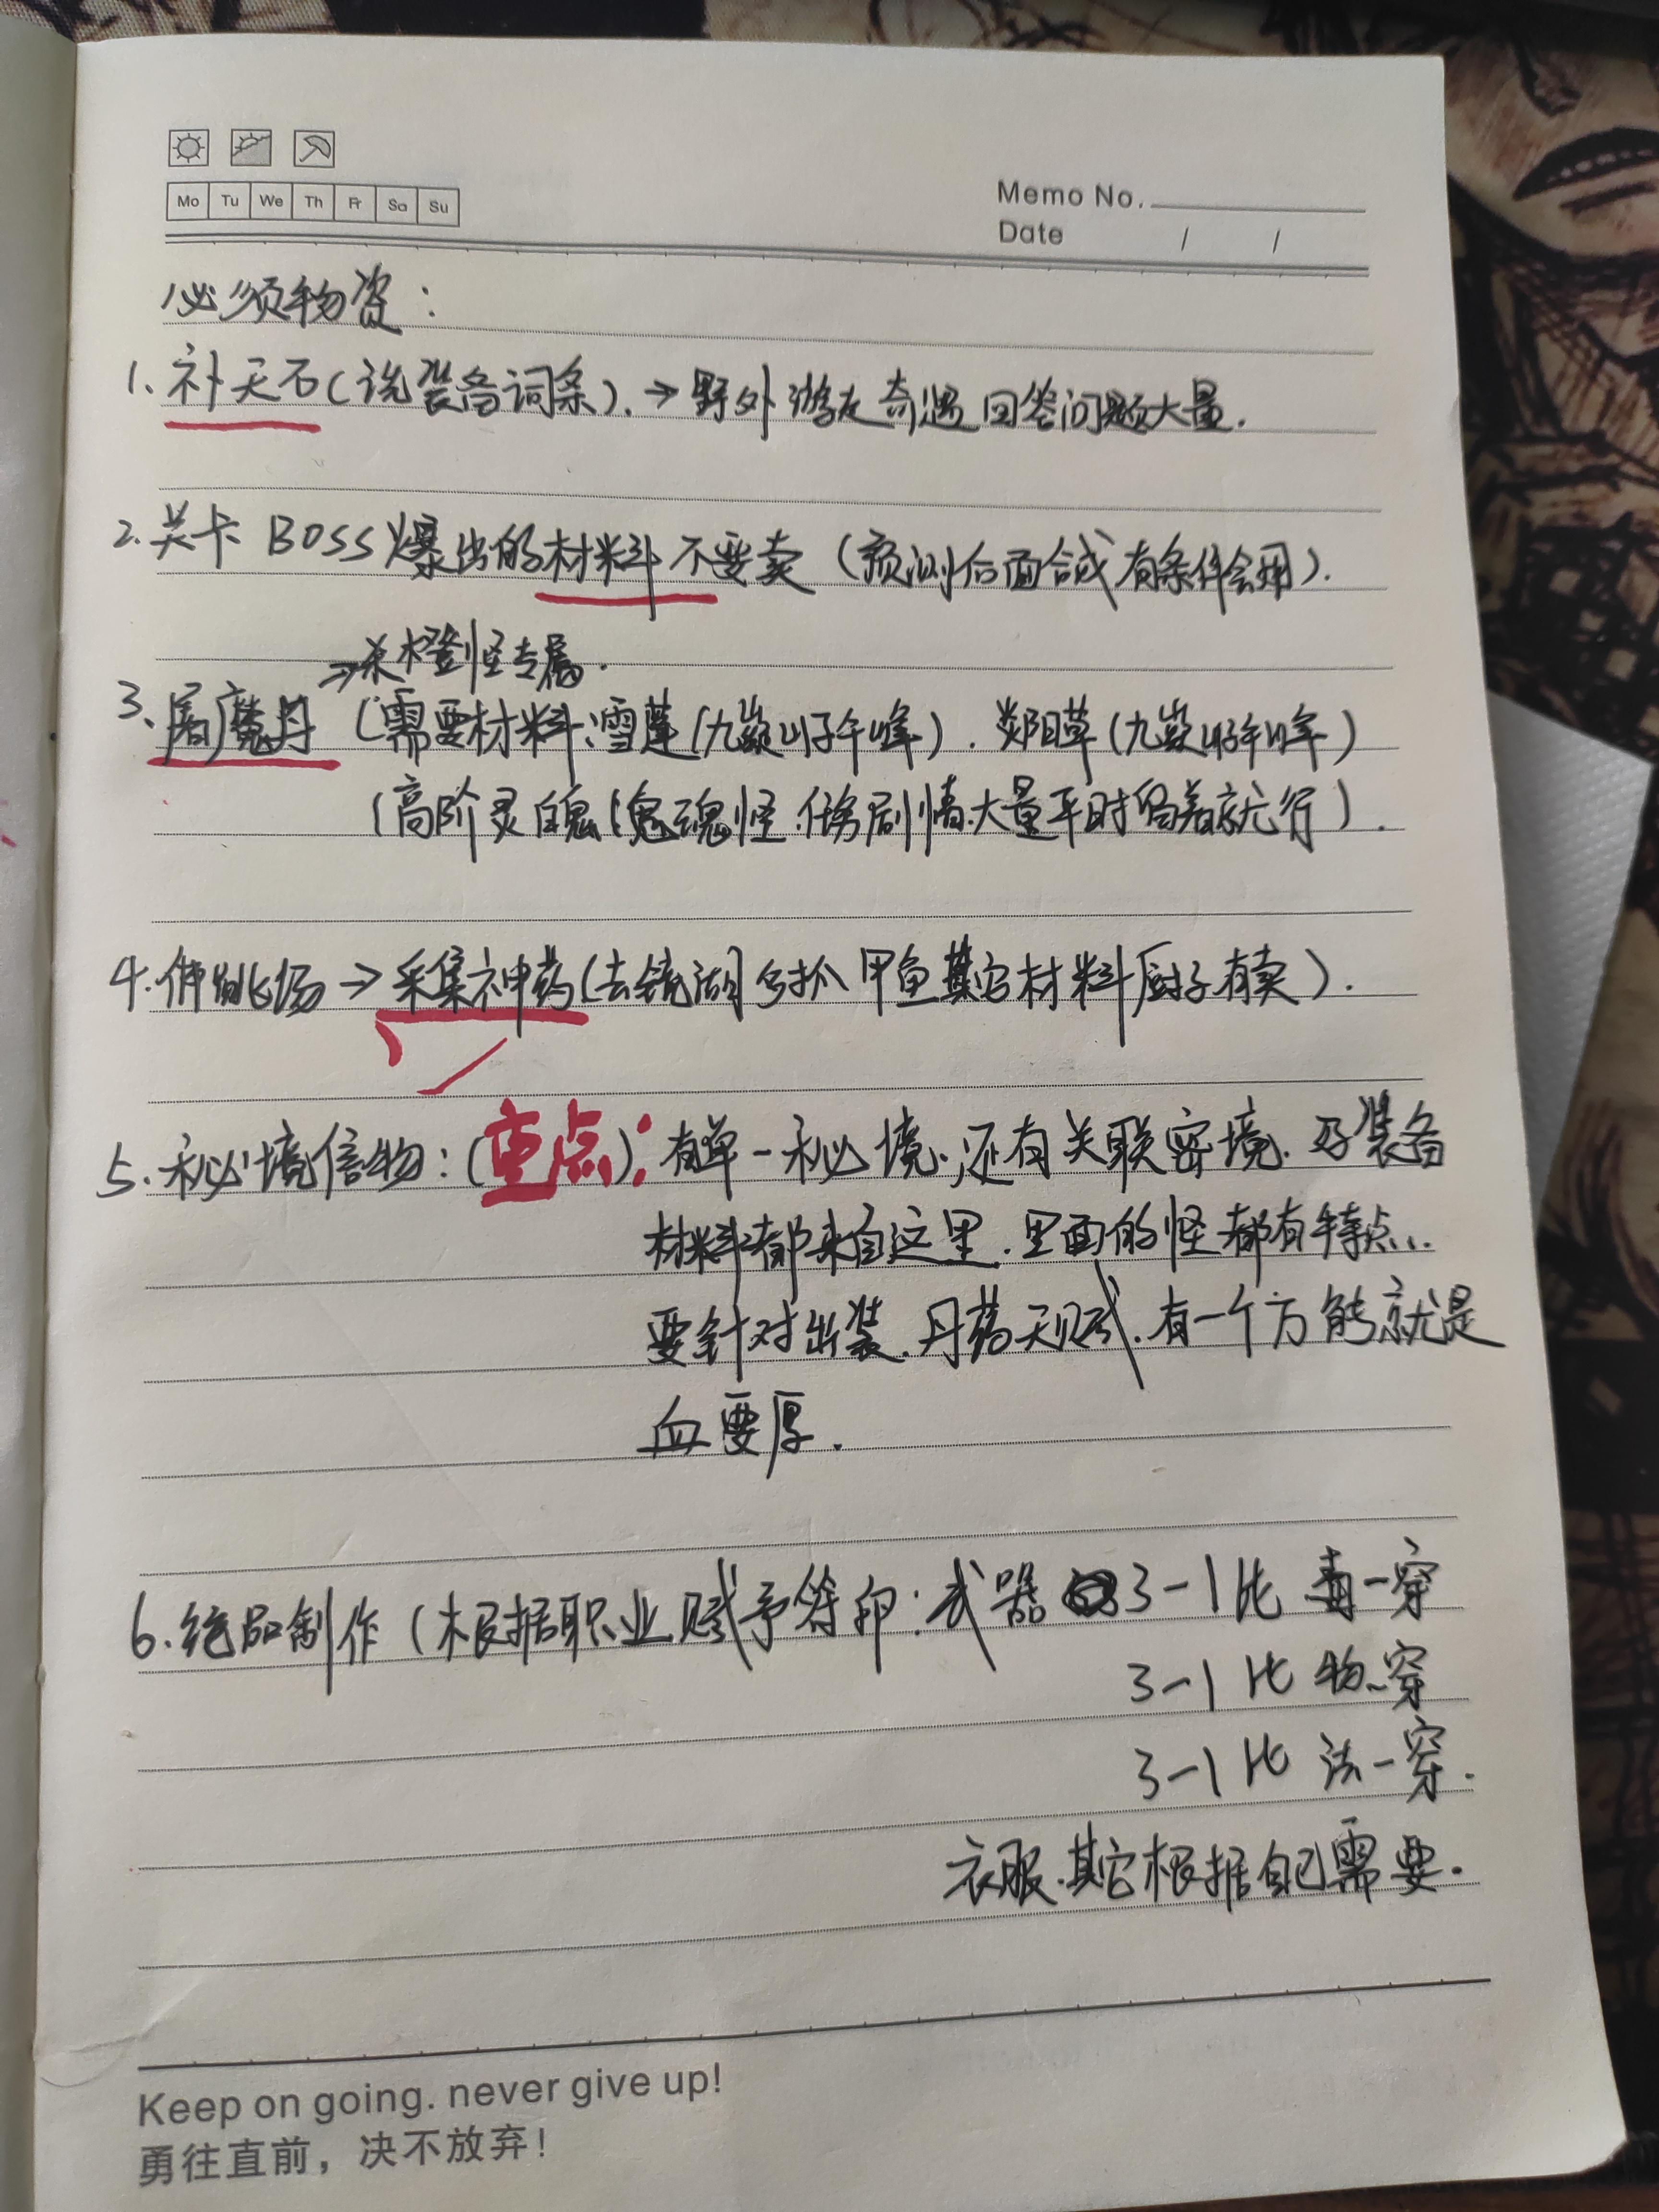 Mo Tu We Th Fr Sa Su
Memo No.
Date / /
必须物资：
1、补天石（洗装备词条）.→野外游友奇遇回答问题大量.
2.关卡 BOSS爆出的材料不要卖（预测后面合成有条件会用）.
→杀橙怪专属.
3、屠魔丹（需要材料:雪莲（九嶷山子午峰）.炎阳草（九嶷山子午峰）
（高阶灵魄（鬼魂怪.任务剧情.大量平时留着就行）.
4.→采集神药（去镜湖多抓甲鱼其它材料厨子有卖）.
5.秘境信物：（重点）：有单一秘境.还有关联密境.好装备
材料都来自这里.里面的怪都有特点..
要针对出装.丹药天赋.有一个万能就是
血要厚.
6.绝品制作（根据职业赋予符印：武器 3-1比 毒-穿
3-1比 物-穿
3-1比 法-穿.
衣服.其它根据自己需要.
Keep on going. never give up!
勇往直前，决不放弃！